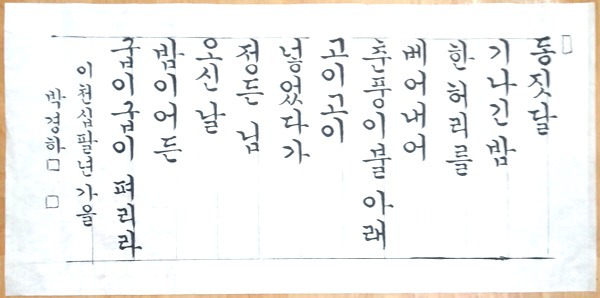 동짓달
기나긴 밤
한 허리를
베어내어
춘풍이불 아래
고이고이
넣었다가
정든 님
오신 날
밤이어든
굽이굽이 펴리라
이천십팔년 가을
박경하